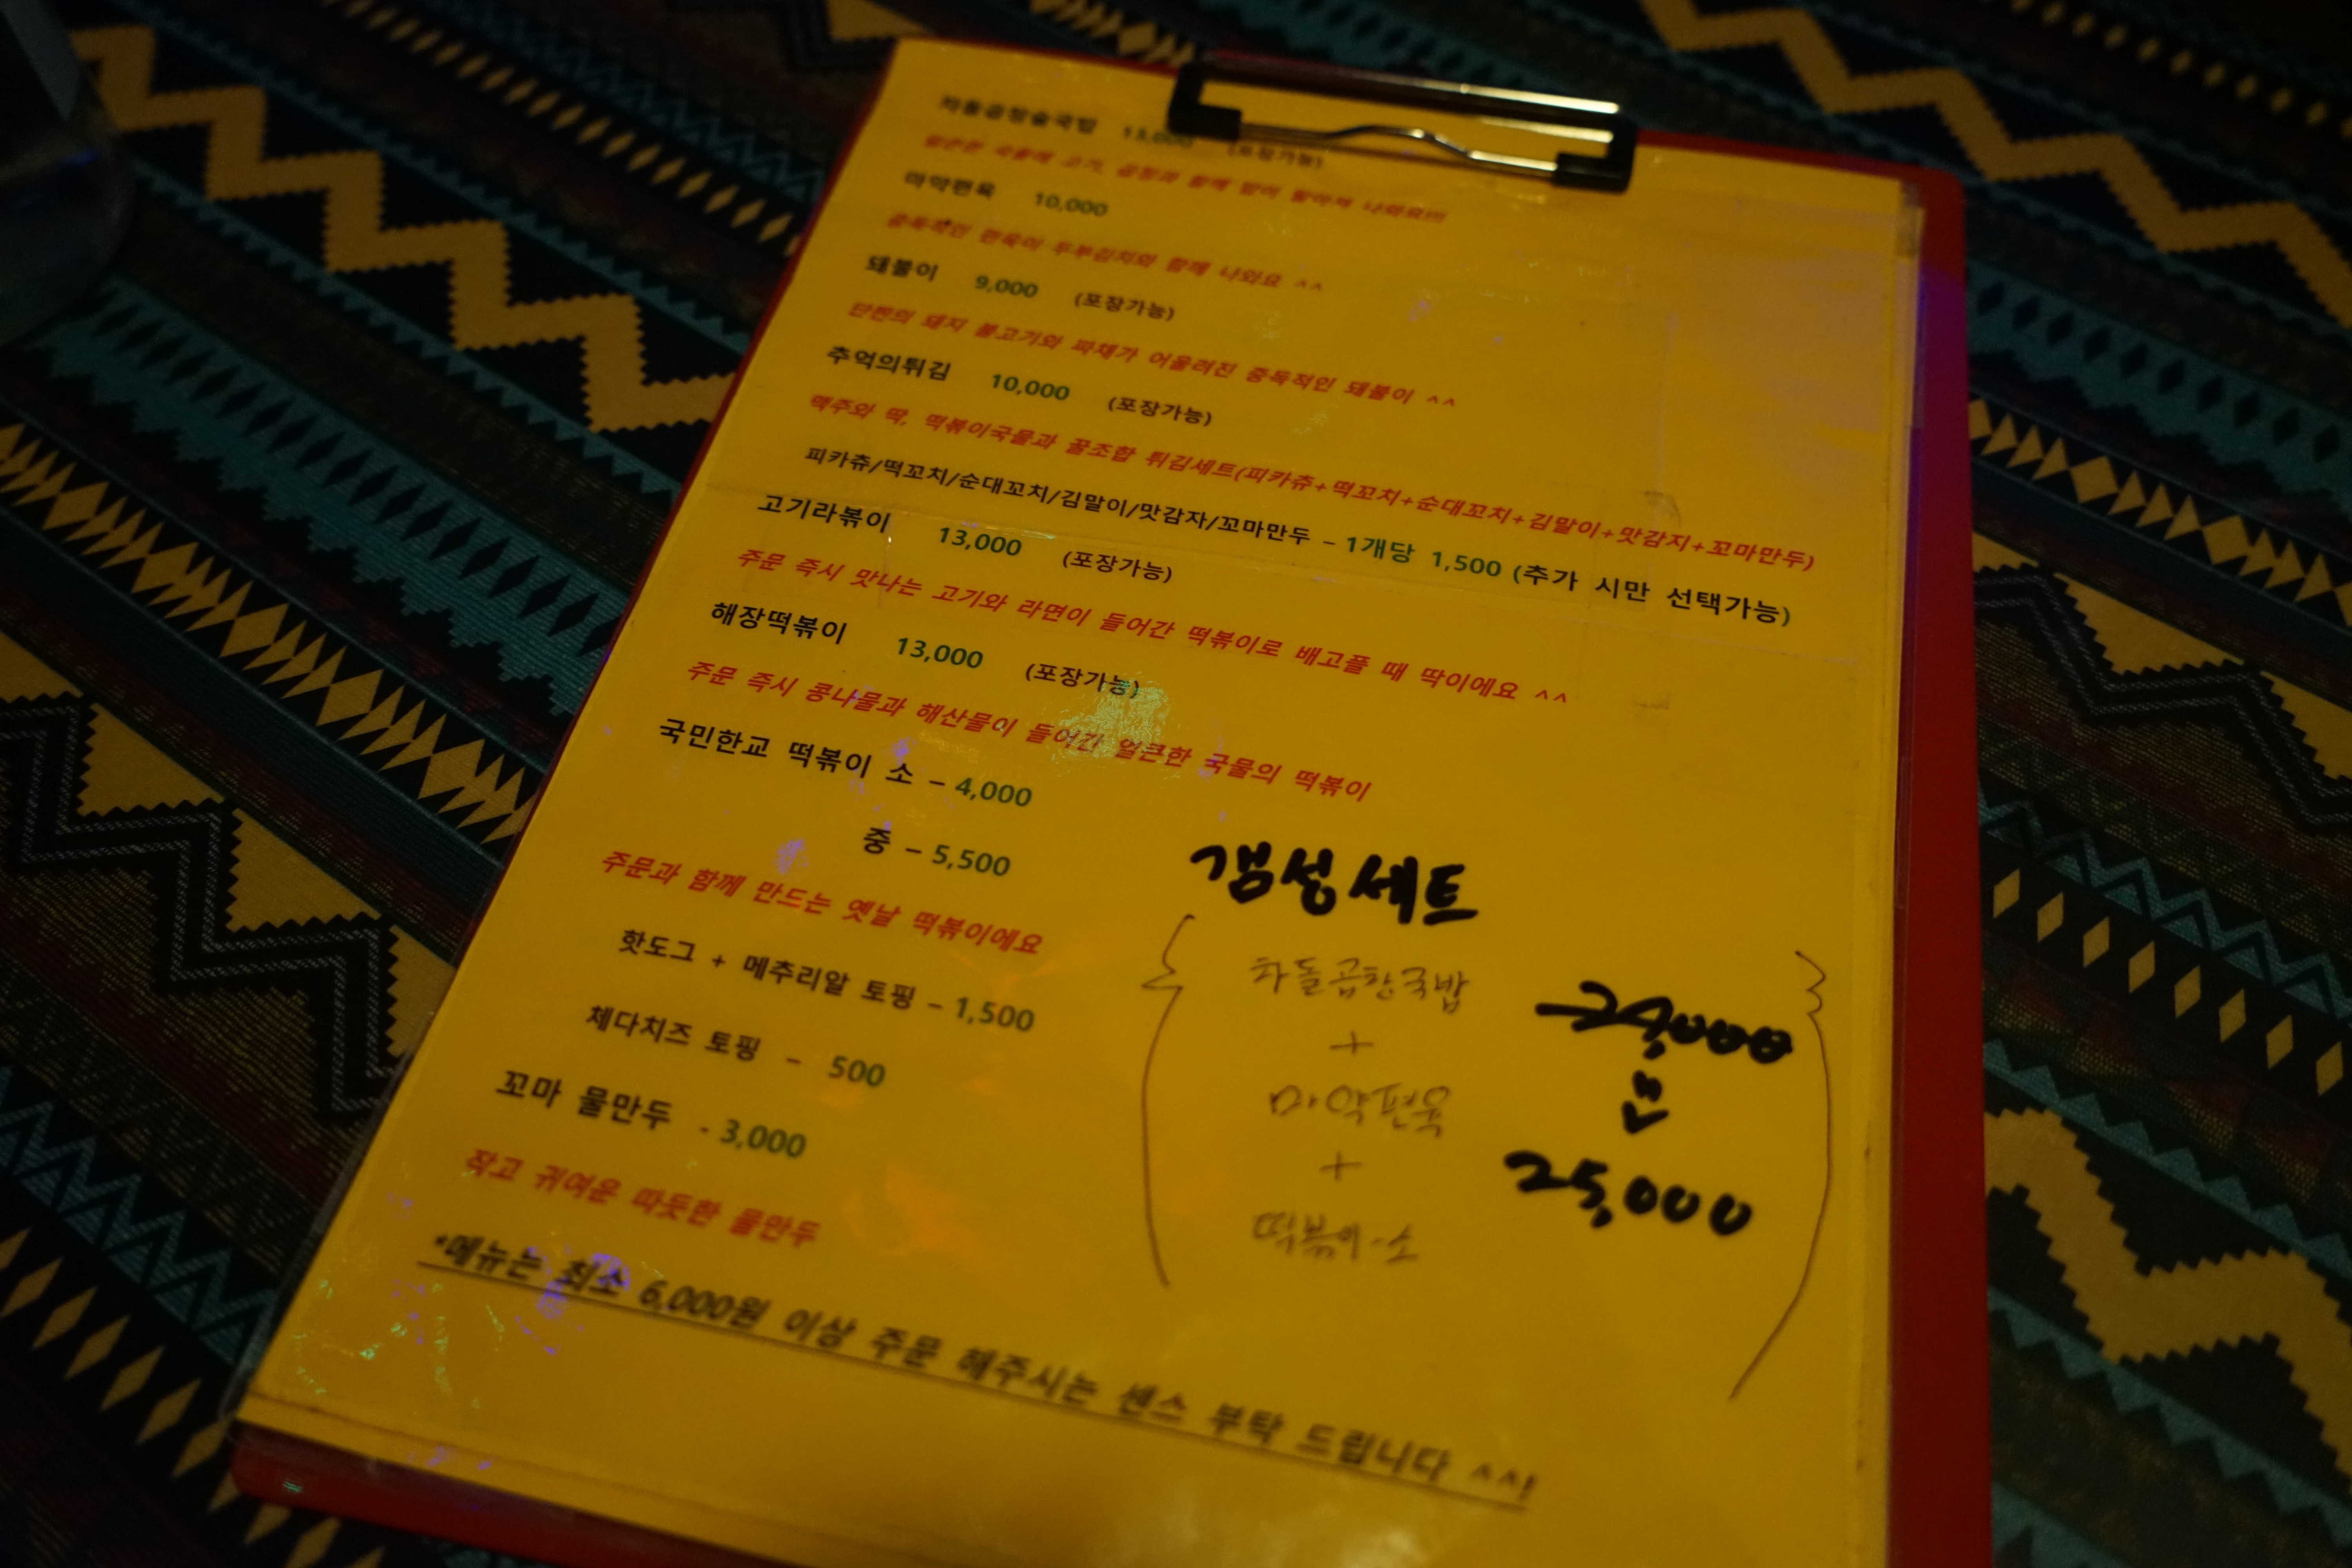 차돌곱창술국밥 13,000 (포장가능)
얼큰한 국물에 고기, 곱창과 함께 밥이 말아져 나와요!!!
마약편육 10,000
중독적인 편육이 두부김치와 함께 나와요 ^^
돼불이 9,000 (포장가능)
단짠의 돼지 불고기와 파채가 어울려진 중독적인 돼불이 ^^
추억의튀김 10,000 (포장가능)
맥주와 딱, 떡볶이국물과 꿀조합 튀김세트(피카츄+떡꼬치+순대꼬치+김말이+맛감지+꼬마만두)
피카츄/떡꼬치/순대꼬치/김말이/맛감자/꼬마만두 – 1개당 1,500 (추가 시만 선택가능)
고기라볶이 13,000 (포장가능)
주문 즉시 맛나는 고기와 라면이 들어간 떡볶이로 배고플 때 딱이에요 ^^
해장떡볶이 13,000 (포장가능)
주문 즉시 콩나물과 해산물이 들어간 얼큰한 국물의 떡볶이
국민한교 떡볶이 소 – 4,000
중 – 5,500
주문과 함께 만드는 옛날 떡볶이에요
핫도그 + 메추리알 토핑 – 1,500
체다치즈 토핑 – 500
꼬마 물만두 - 3,000
작고 귀여운 따듯한 물만두
*메뉴는 최소 6,000원 이상 주문 해주시는 센스 부탁 드립니다 ^^!
갬성세트
차돌곱창국밥
+
마약편육
+
떡볶이-소
25,000